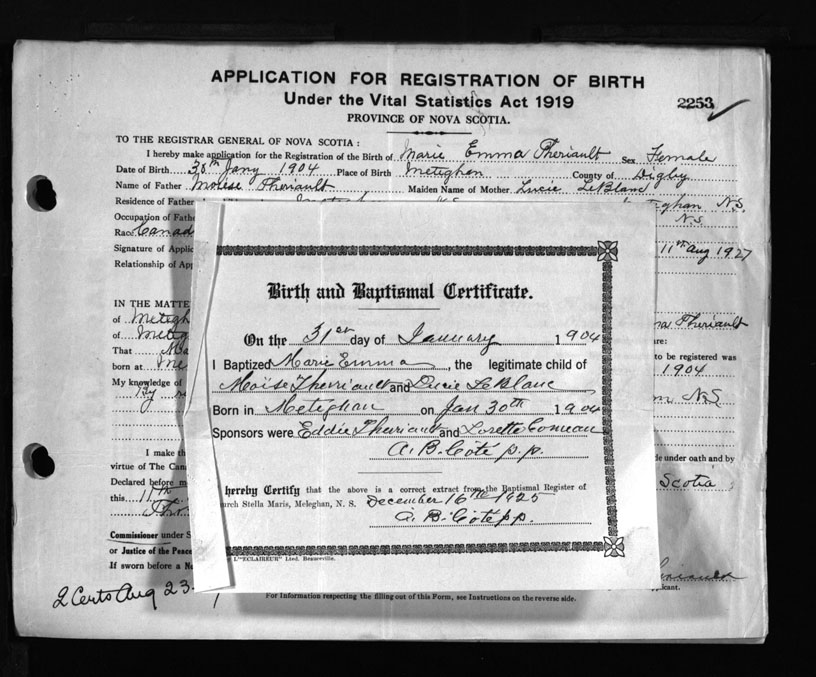 APPLICATION FOR REGISTRATION OF BIRTH
Under the Vital Statistics Act 1919
2253
PROVINCE OF NOVA SCOTIA.
TO THE REGISTRAR GENERAL OF NOVA SCOTIA :
I hereby make application for the Registration of the Birth of Marie Emma Theriault Sex Female
Date of Birth 30th Jany 1904 Place of Birth Meteghan County of Digby
Name of Father Moise Theriault Maiden Name of Mother Lucie LeBlanc
Residence of Father N.S.
Occupation of Fathe N.S.
Race Canad
Signature of Applic 11th Aug 1927
Relationship of App
IN THE MATTE
of Metegh Theriault
of Meteg re:
That Ma to be registered was
born at Me 1904
My knowledge of N.S.
I make th de under oath and by
virtue of The Cana Scotia
Declared before m
this 11th
Commissioner under S
or Justice of the Peace
If sworn before a No icant.
2 Certs Aug 23
For Information respecting the filling out of this Form, see Instructions on the reverse side.
Birth and Baptismal Certificate.
On the 31st day of January 1904
I Baptized Marie Emma, the legitimate child of
Moïse Therriault and Lucie LeBlanc
Born in Meteghan on Jan 30th 1904
Sponsors were Eddie Theriault and Lorette Comeau
A. B. Coté p.p.
hereby Certify that the above is a correct extract from the Baptismal Register of
urch Stella Maris, Meleghan, N. S. December 16th 1925
A. B. Coté pp.
L'"ECLAIREUR" Limd. Beauceville.